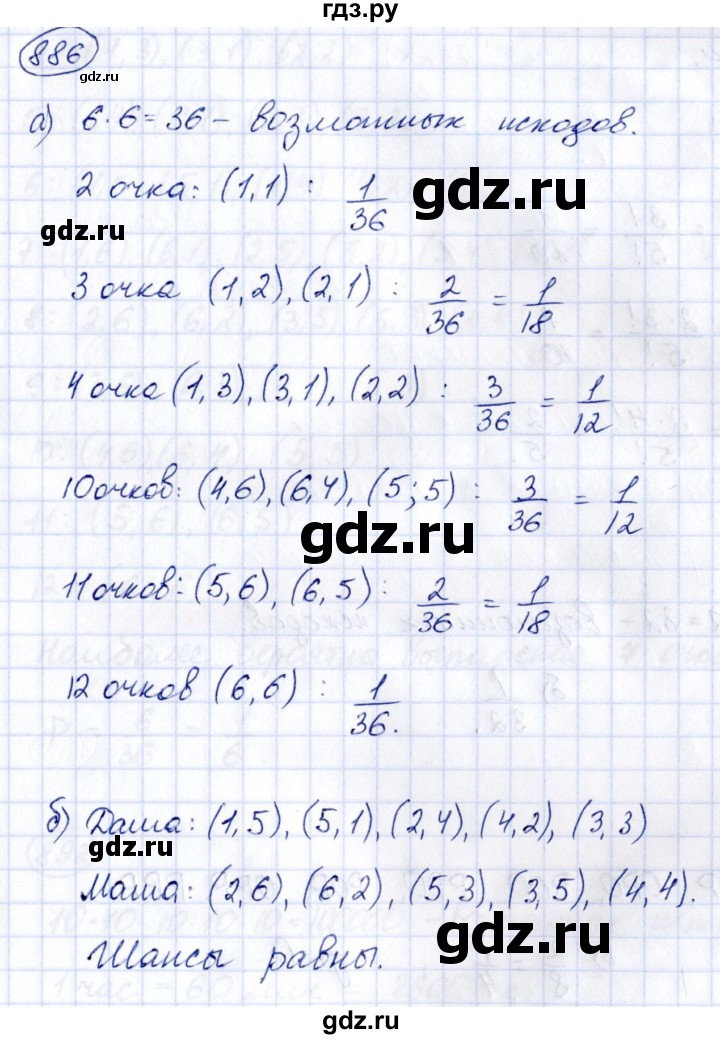 гдз.ру
886
gdz.ru
а) 6·6=36 – возможных исходов.
2 очка: (1,1) : 1/36
gdz.ru
gdz.ru
3 очка (1,2), (2,1) : 2/36 = 1/18
4 очка (1,3), (3,1), (2,2) : 3/36 = 1/12
10 очков: (4,6), (6,4), (5;5) : 3/36 = 1/12
gdz.ru
11 очков: (5,6), (6,5) : 2/36 = 1/18
12 очков (6,6) : 1/36.
б) Даша: (1,5), (5,1), (2,4), (4,2), (3,3)
gdz.ru
Маша: (2,6), (6,2), (5,3), (3,5), (4,4).
Шансы равны.
gdz.ru
gdz.ru